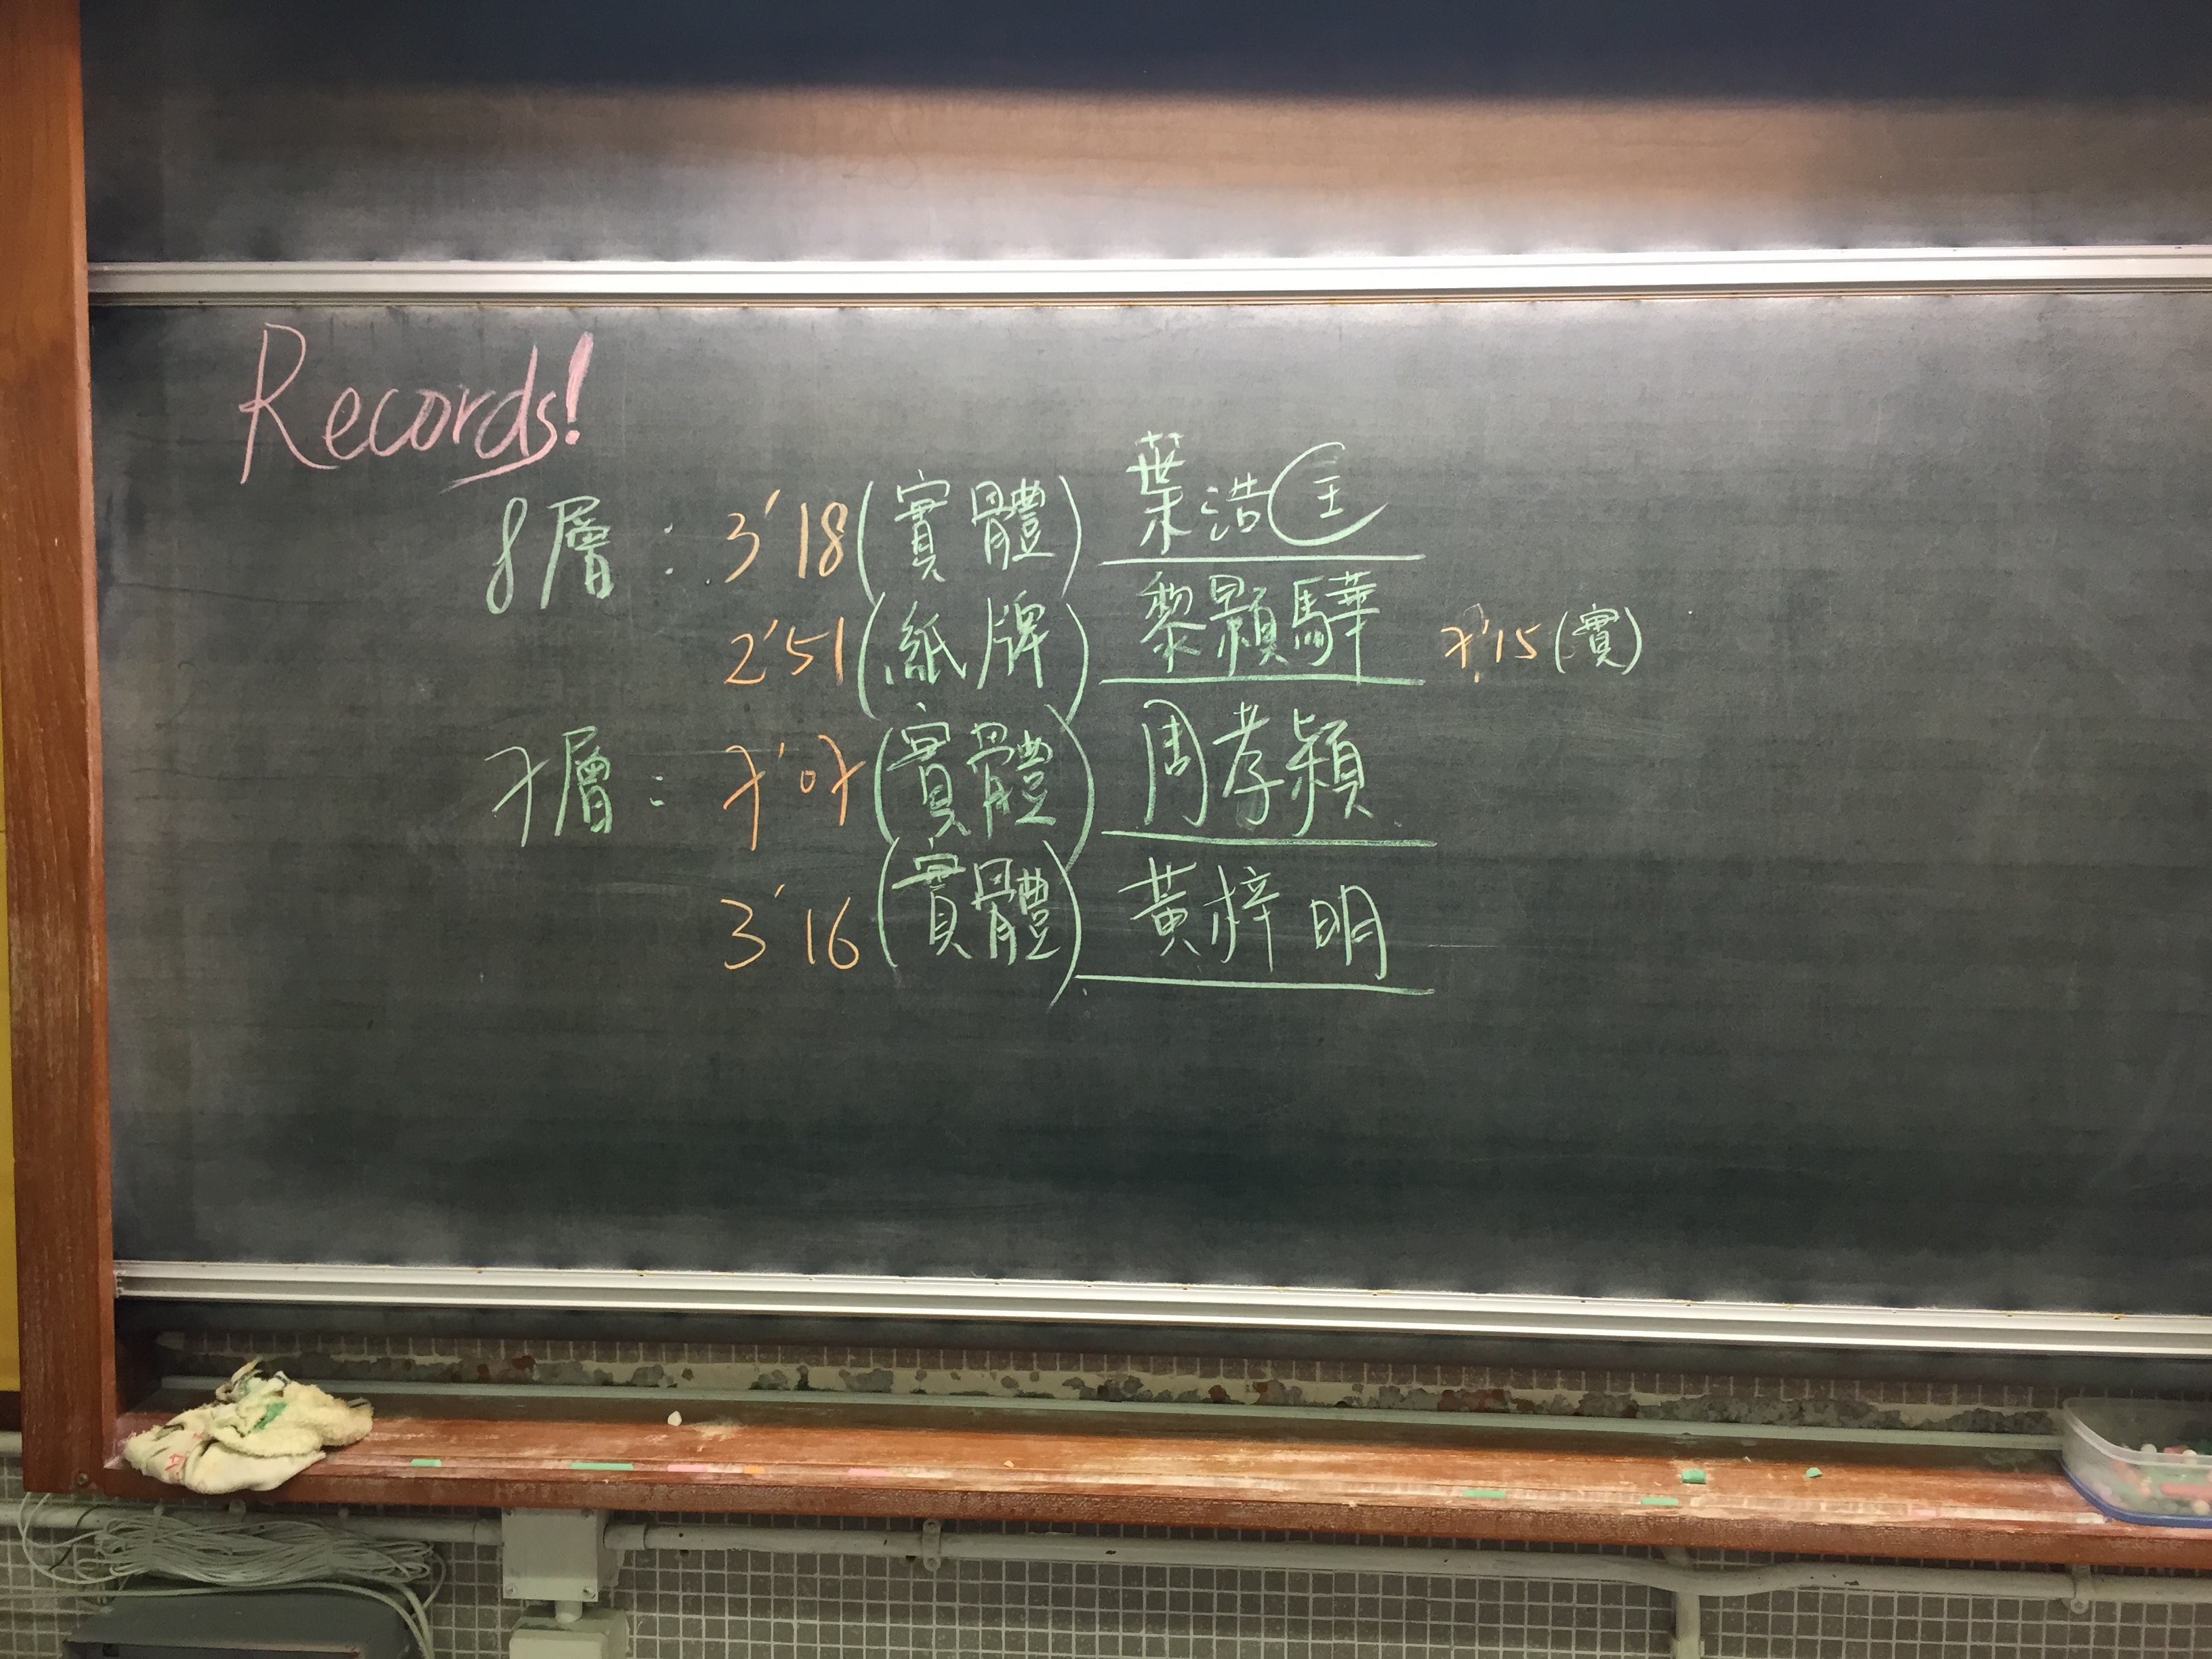 Records!
8層：3'18(實體) 葉浩匡
2'51(紙牌) 黎顥驊 7'15(實)
7層：7'07(實體) 周孝穎
3'16(實體) 黃梓明